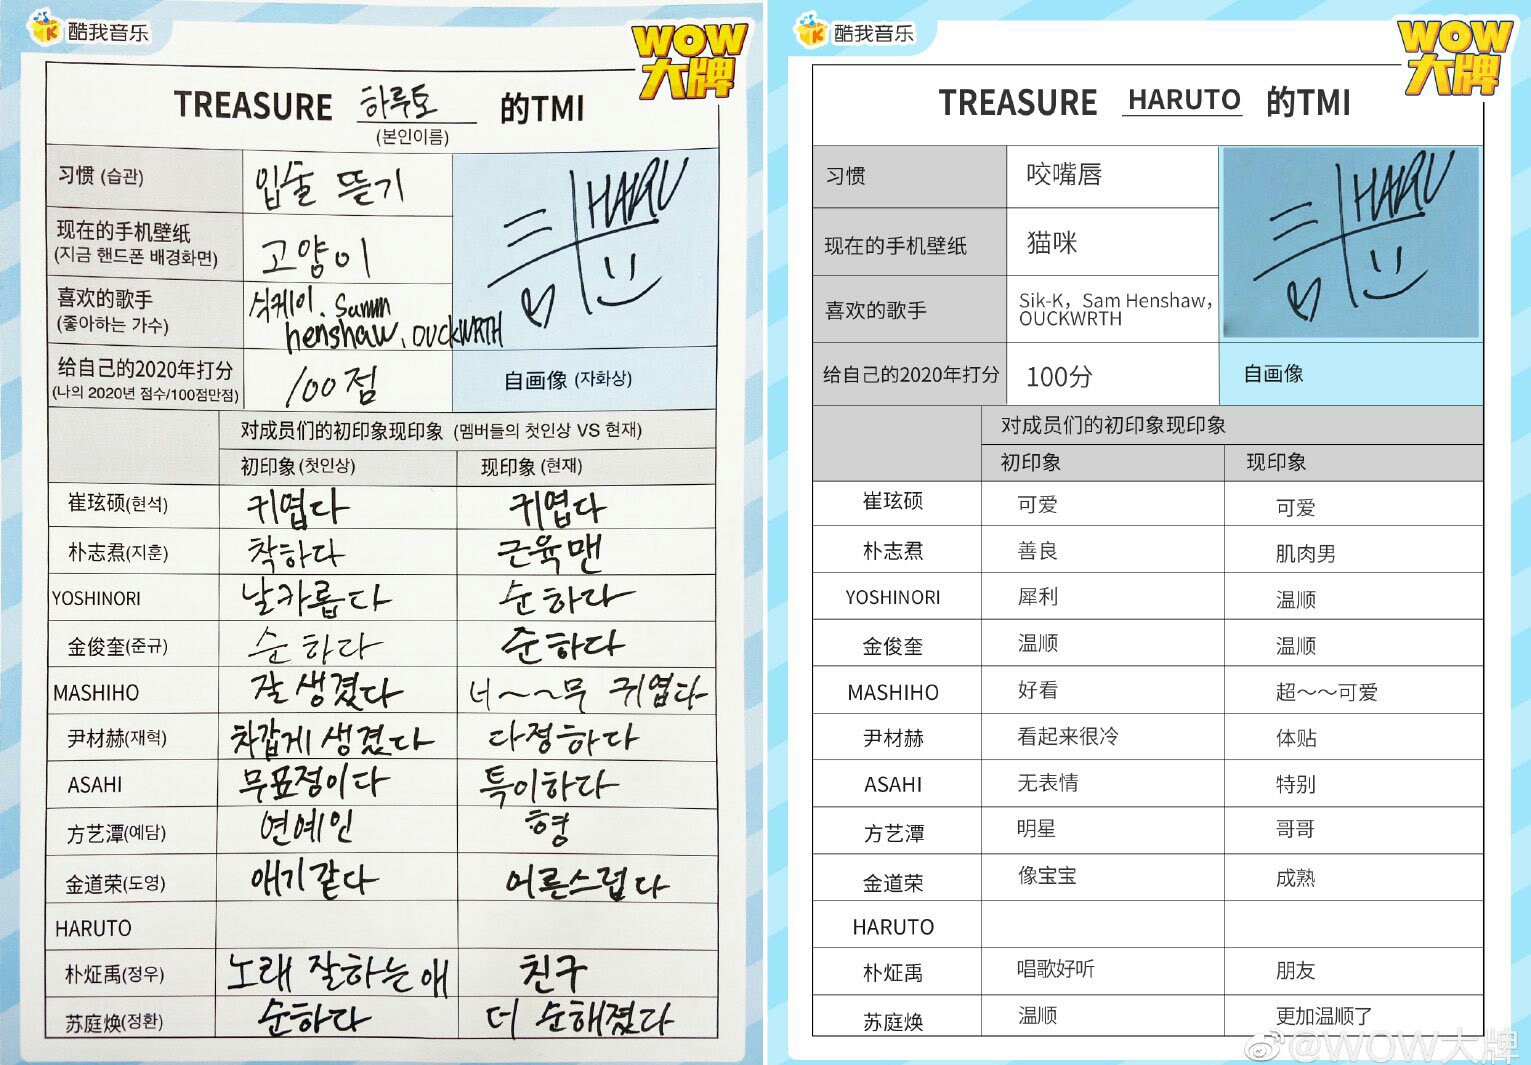 酷我音乐
WOW
大牌
TREASURE 하루토 的TMI
(본인이름)
习惯 (습관)
입술 뜯기
现在的手机壁纸
(지금 핸드폰 배경화면)
고양이
喜欢的歌手
(좋아하는 가수)
식케이. Samm
henshaw, OUCKWRTH
HARU
给自己的2020年打分
(나의 2020년 점수/100점만점)
100점
自画像 (자화상)
对成员们的初印象现印象 (멤버들의 첫인상 VS 현재)
初印象 (첫인상) 现印象 (현재)
崔玹硕(현석) 귀엽다 귀엽다
朴志焄(지훈) 착하다 근육맨
YOSHINORI 날카롭다 순하다
金俊奎(준규) 순하다 순하다
MASHIHO 잘생겼다 너~~무 귀엽다
尹材赫(재혁) 차갑게 생겼다 다정하다
ASAHI 무표정이다 특이하다
方艺潭(예담) 연예인 형
金道荣(도영) 애기같다 어른스럽다
HARUTO
朴炡禹(정우) 노래 잘하는 애 친구
苏庭焕(정환) 순하다 더 순해졌다
酷我音乐
WOW
大牌
TREASURE HARUTO 的TMI
习惯 咬嘴唇
现在的手机壁纸 猫咪
喜欢的歌手
Sik-K，Sam Henshaw，
OUCKWRTH
HARU
给自己的2020年打分 100分
自画像
对成员们的初印象现印象
初印象 现印象
崔玹硕 可爱 可爱
朴志焄 善良 肌肉男
YOSHINORI 犀利 温顺
金俊奎 温顺 温顺
MASHIHO 好看 超～～可爱
尹材赫 看起来很冷 体贴
ASAHI 无表情 特别
方艺潭 明星 哥哥
金道荣 像宝宝 成熟
HARUTO
朴炡禹 唱歌好听 朋友
苏庭焕 温顺 更加温顺了
@WOW大牌